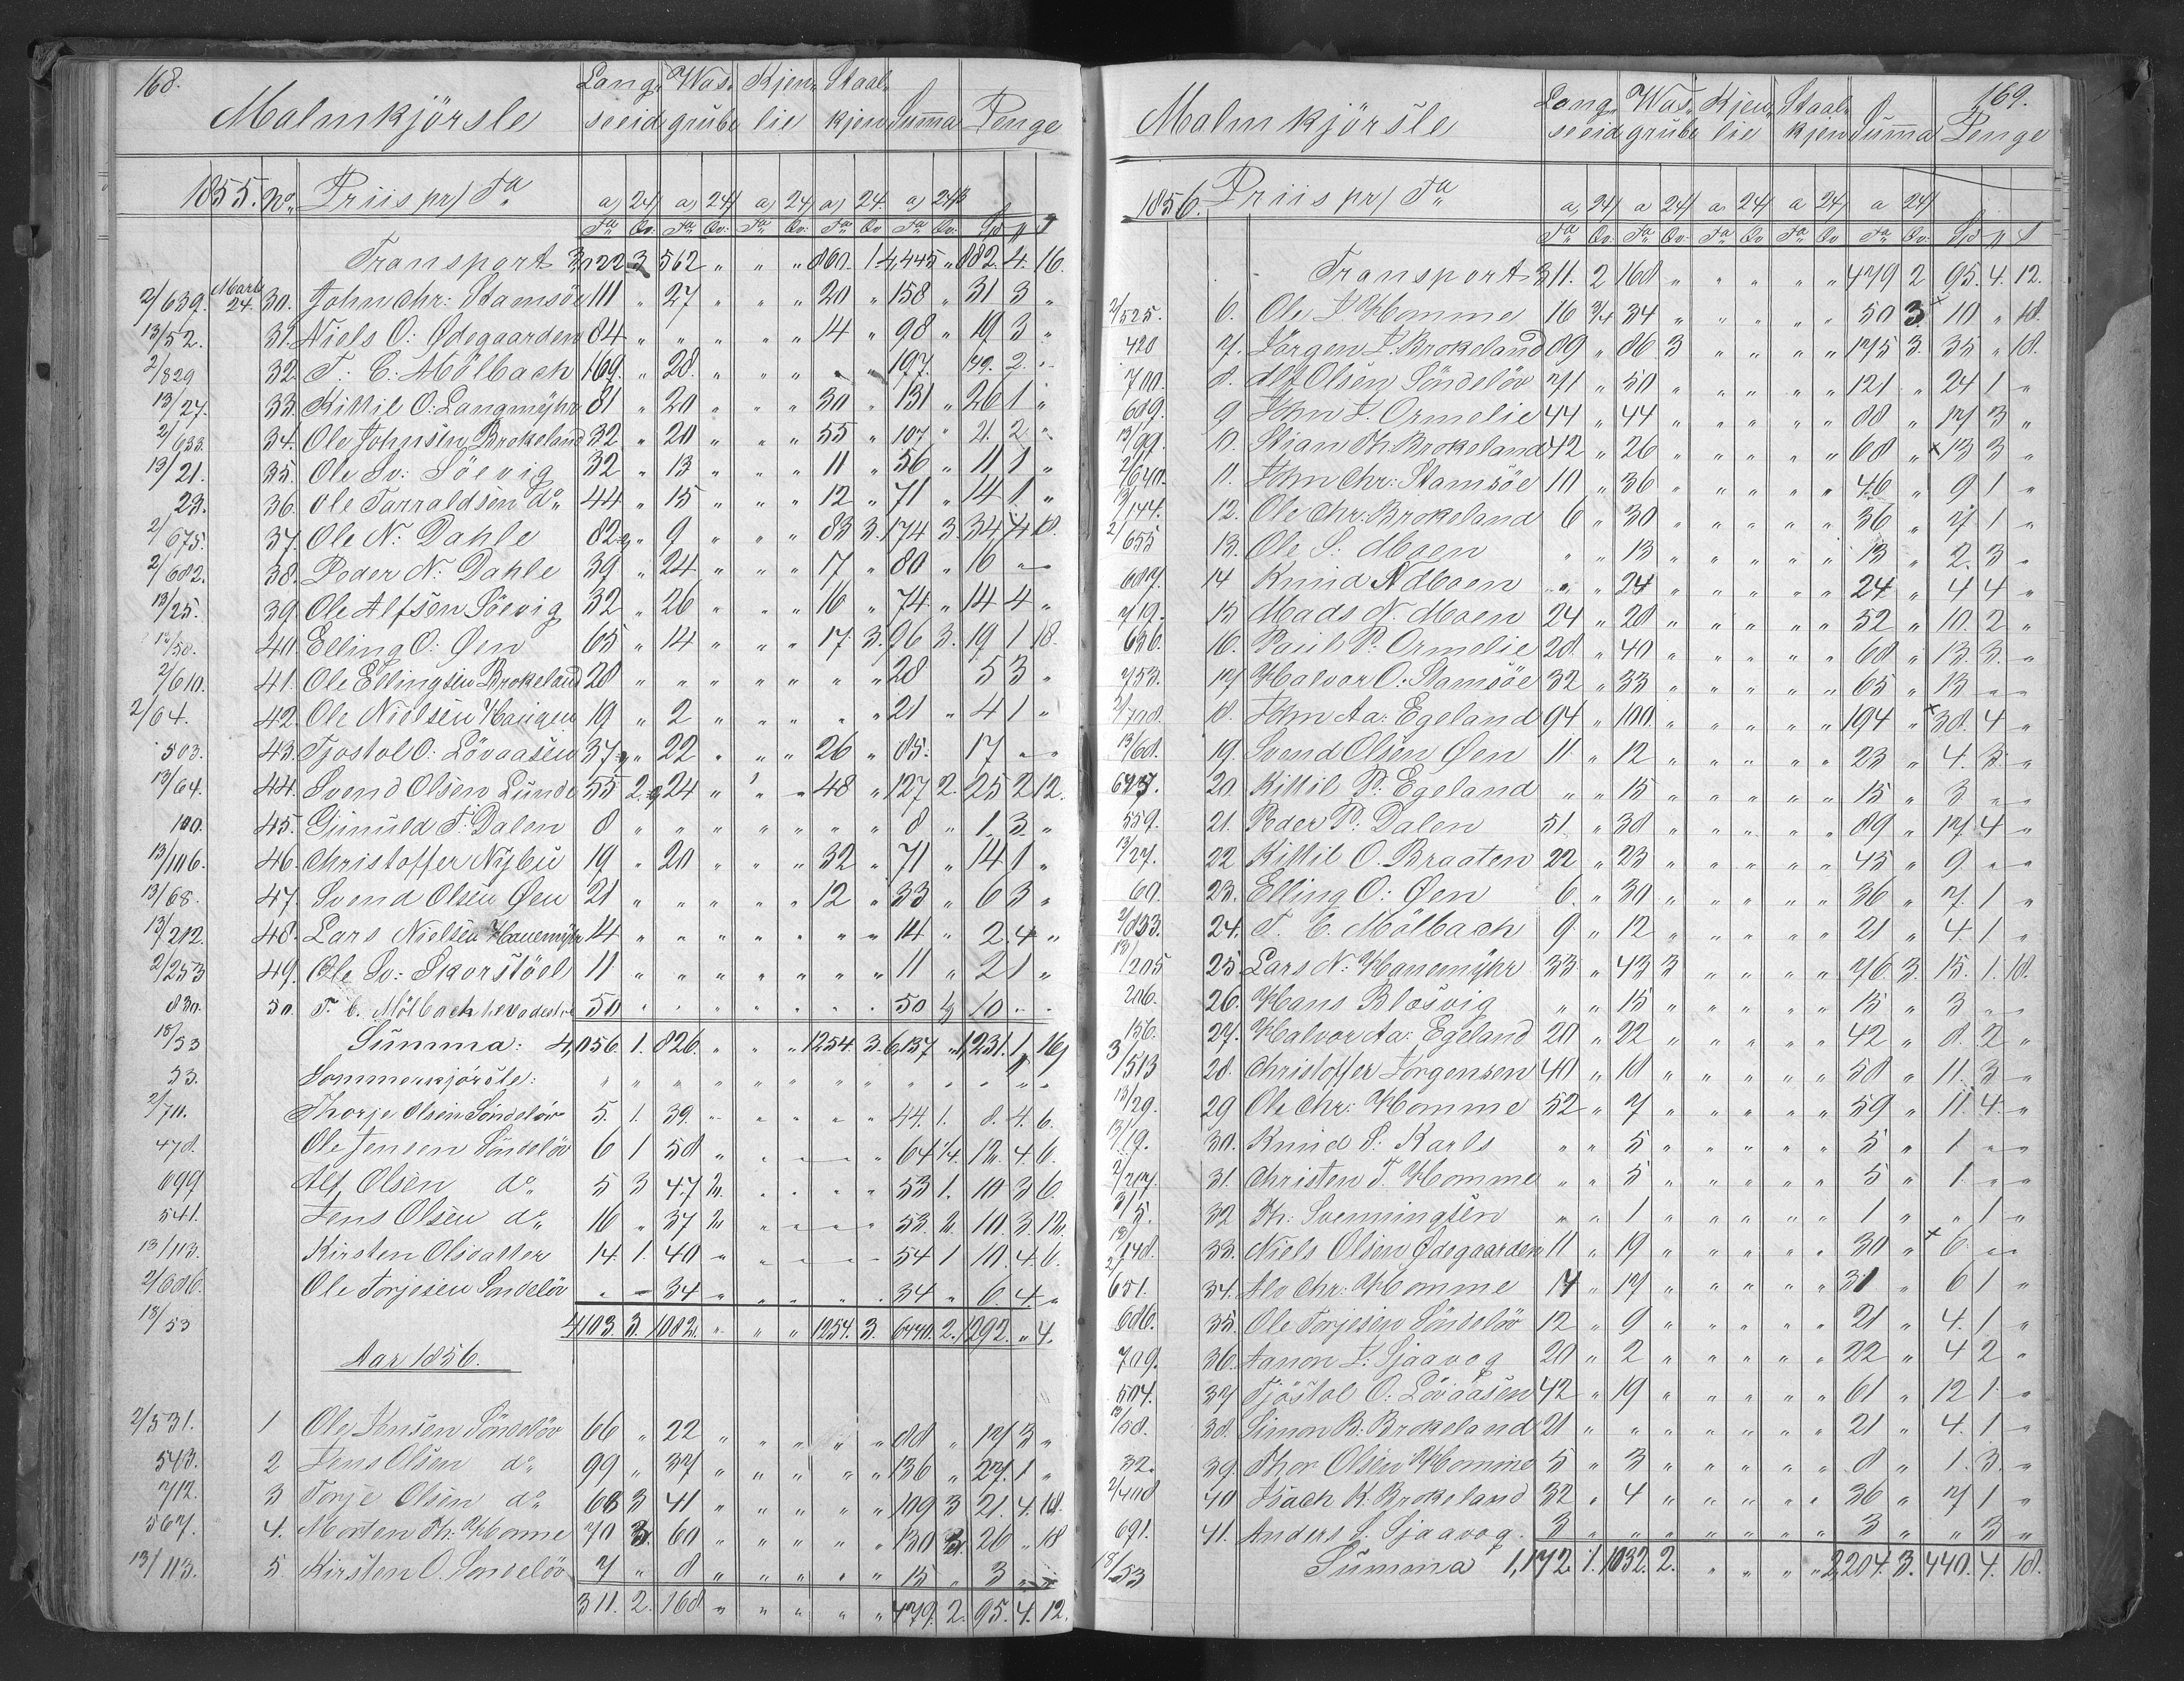 168.
Malmkjörsle Lang- Was- Kjen- Staal-
seeid grube lie kjen Summa Penge
1855. No. Priis pr/ Ta a 24/ a 24/ a 24/ a 24 a 24
Ta Qv: Ta Qv: Ta Qv: Ta Qv Ta Qv: Sp
Transport 3,122 3 562 " " " 860. 1 4,445 " 882. 4. 16.
2/639. Marts 24. 30. John Chr: Stamsöe 111 " 27 " " " 20 " 158 " 31 3 "
13/52. 31. Niels O: Ødegaarden 84 " " " " " 14 " 98 " 19 3 "
2/829 32. T. C: Mölbach 169. " 28. " " " " " 197. " 39. 2. "
13/27. 33. Kittil O: Langmÿhr 81 " 20 " " " 30 " 131 " 26 1 "
2/633. 34. Ole Johnsen Brokeland 32 " 20 " " " 55 " 107 " 21. 2 "
13/21. 35. Ole Sv: Söevig 32 " 13 " " " 11 " 56 " 11 1 "
23. 36. Ole Tarraldsen do 44 " 15 " " " 12 " 71 " 14 1 "
2/675. 37. Ole N: Dahle 82 " 9 " " " 83 3. 174 3. 34 4 18.
2/682. 38. Peder N: Dahle 39 " 24 " " " 17 " 80 " 16 " "
13/25. 39. Ole Alfsen Söevig 32 " 26 " " " 16 " 74 " 14 4 "
13/50. 40. Elling O: Øen 65 " 14 " " " 17. 3. 96 3. 19 1 18
2/610. 41. Ole Ellingsen Brokeland 28 " " " " " " " 28 5 3 "
2/64. 42. Ole Nielsen Haugen 19 " 2 " " " " " 21 " 4 1 "
503. 43. Tjostol O: Lövaasen 37 " 22 " " " 26 " 85. 17 " "
13/64. 44. Svend Olsen Lunde 55 2. 24 " " " 48 " 127 2. 25 2 12.
100. 45. Gunuld T: Dalen 8 " " " " " " " 8 " 1. 3. "
13/106. 46. Christoffer Nÿbu 19 " 20 " " " 32 " 71 " 14 1 "
13/68. 47. Svend Olsen Øen 21 " " " " " 12 " 33 " 6 3 "
13/212. 48. Lars Nielsen Hanemÿhr 14 " " " " " " " 14 " 2 4 "
2/253 49. Ole Sv: Skorstöel 11 " " " " " " " 11 " 2 1 "
830. 50. T. C. Mölbach 50 " " " " " " " 50 10 " "
18/53 Summa: 4,056. 1. 826. " " " 1254. 3. 6,137 " 1,231. 1 16
53. Sommerkjörsle: " " " " " " " " " " " " "
2/711. Thorje Olsen Söndelöv 5. 1. 39. " " " " " 44. 1. 8. 4. 6.
478. Ole Jensen Söndelöv 6 1 58 " " " " " 64 1/4. 12. 4. 6.
699 Alf Olsen do 5 3 47 2. " " " " 53 1. 10 3 6.
541. Jens Olsen do 16 " 37 2 " " " " 53. 2. 10. 3. 12.
13/113. Kirsten Olsdatter 14. 1. 40 " " " " " 54 1 10. 4. 6.
2/686. Ole Torjesen Söndelöv " " 34 " " " " " 34 " 6. 4. "
18/53 4103. 3. 1082. " " " 1254. 3. 6440. 2. 1292. " 4.
Aar 1856.
2/531. 1 Ole Jensen Söndelöv 66 " 22 " " " " " 88 " 17 3 "
543. 2 Jens Olsen do 99 " 37 " " " " " 136 " 27. 1 "
712. 3 Torje Olsen do 68 3 41 " " " " " 109 3 21. 4. 18.
567. 4. Morten Th: Homme 70 3. 60 " " " " " 130 3. 26 " 18
13/113. 5. Kirsten O. Söndelöv 7 " 8 " " " " " 15 " 3 " "
311. 2. 168 " " " " " 479. 2. 95. 4. 12.
169.
Malmkjörsle Lang- Was- Kjen- Staal-
seeid grube lie kjen Summa Penge
1856. Priis pr/ Ta a 24/ a 24/ a 24/ a 24/ a 24/
Ta Qv: Ta Qv: Ta Qv Ta Qv Ta Qv: Sp
Transport 311. 2 168 " " " " " 479 2 95. 4. 12.
2/525. 6. Ole J Homme 16 3/4 34 " " " " " 50 3. 10 " 18.
420 7. Jörgen J. Brokeland 89 " 86 3 " " " " 175 3. 35 " 18.
700. 8. Alf Olsen Söndelöv 71 " 50 " " " " " 121 " 24 1 "
689. 9 John J. Ormelie 44 " 44 " " " " " 88 " 17 3 "
13/99. 10. Stian Th. Brokeland 42 " 26 " " " " " 68 " 13 3 "
2/640. 11. John Chr: Stamsöe 10 " 36 " " " " " 46 " 9 1 "
13/144. 12. Ole Chr: Brokeland 6 " 30 " " " " " 36 " 7 1 "
2/655 13. Ole S: Moen " " 13 " " " " " 13 " 2. 3 "
14 Knud N Moen " " 24 " " " " " 24 " 4 4 "
719. 15 Mads N. Moen 24 " 28 " " " " " 52 " 10. 2 "
636. 16. Paul P: Ormelie 28 " 40 " " " " " 68 " 13. 3. "
753. 17 Halvor O: Stamsöe 32 " 33 " " " " " 65 " 13 " "
2/708. 18. John Aa: Egeland 94 " 100. " " " " " 194 " 38. 4 "
13/68. 19. Svend Olsen Øen 11 " 12 " " " " " 23 " 4. 3. "
20 Kittil P: Egeland " " 15 " " " " " 15 " 3 " "
559. 21. Peder P: Dalen 51. " 38 " " " " " 89 " 17. 4 "
13/27. 22 Kittil O. Braaten 22 " 23 " " " " " 45 " 9. " "
60. 23. Elling O: Øen 6. " 30 " " " " " 36 " 7. 1 "
2/833. 24. T. C. Mölbach 9 " 12 " " " " " 21 " 4. 1 "
13/205 25 Lars N: Hanemÿhr 33 " 43 3 " " " " 76. 3. 15. 1. 18.
206. 26 Hans Blosvig " " 15 " " " " " 15 " 3 " "
156. 27. Halvor Aa: Egeland 20 " 22 " " " " " 42 " 8. 2 "
3/513 28. Christoffer Jörgensen 40 " 18 " " " " " 58 " 11. 3 "
13/29. 29 Ole Chr: Homme 52 " 7 " " " " " 59 " 11. 4. "
13/19. 30. Knud S: Karls " " 5 " " " " " 5 " 1 " "
31. Christen T. Homme " " 5 " " " " " 5 " 1 " "
3/5. 32 Th: Svenningsen " " 1 " " " " " 1 " " 1 "
33. Niels Olsen Ødegaarden 11 " 19 " " " " " 30 " 6 " "
651. 34. Alv Chr: Homme 14 " 17 " " " " " 31 " 6 1 "
686. 35. Ole Torjesen Söndelöv 12 " 9 " " " " " 21 " 4. 1 "
709. 36. Aanon J: Sjaavog 20 " 2 " " " " " 22 " 4 2 "
504. 37 Tjöstol O: Lövaasen 42 " 19 " " " " " 61 " 12 1 "
13/58. 38. Simon B: Brokeland 21 " " " " " " " 21 " 4. 1 "
32. 39. Thor Olsen Homme 5 " 3 " " " " " 8 " 1. 3. "
2/408 40 Isach K. Brokeland 32 " 4 " " " " " 36 " 7 1 "
691. 41. Anders S. Sjaavog. 3 " " " " " " " 3 " " 3 "
18/53 Summa 1,172. 1. 1032. 2. " " " " 2,204. 3. 440. 4. 18.